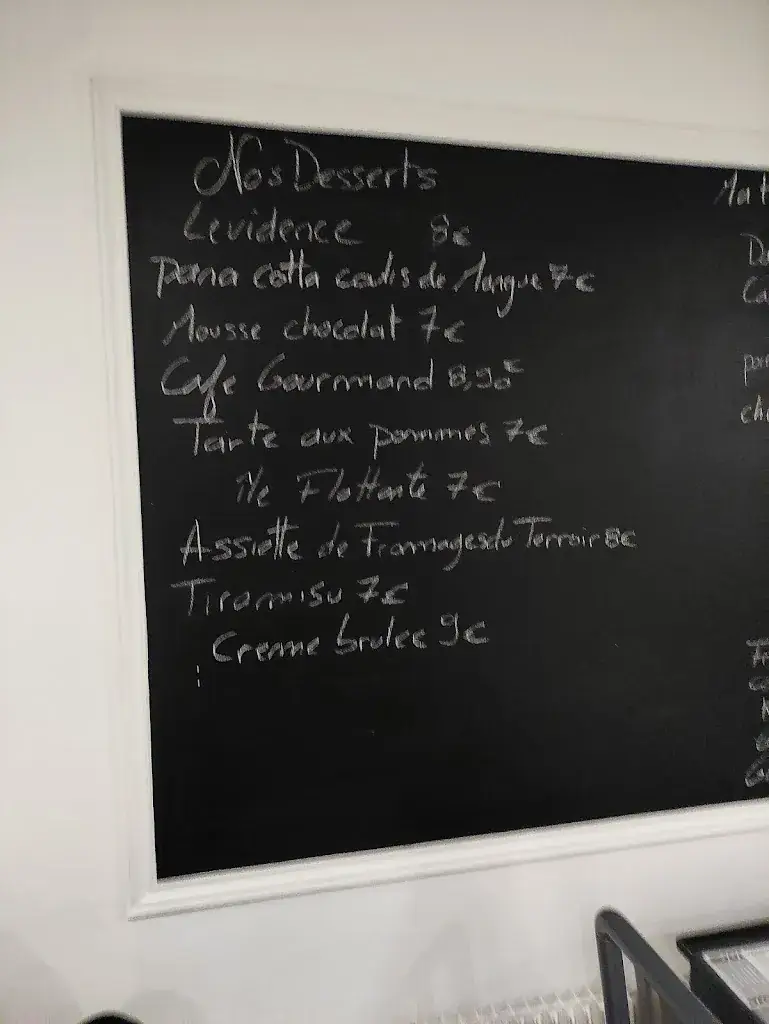 Nos Desserts
Levidence 8€
pana cotta coulis de Mangue 7€
Mousse chocolat 7€
Cafe Gourmand 8,90€
Tarte aux pommes 7€
île Flottante 7€
Assiette de Fromages du Terroir 8€
Tiramisu 7€
Creme brulee 9€